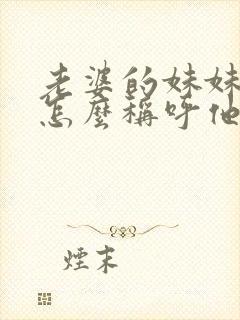 老婆的妹妹
怎麼稱呼他
煙末